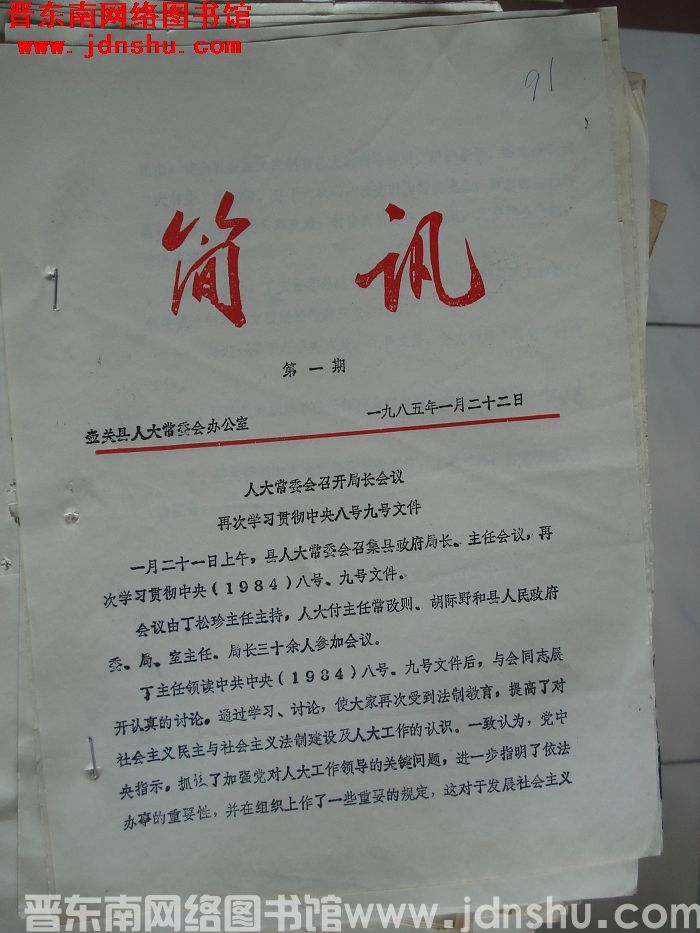 晋东南网络图书馆
www.jdnshu.com
91
简讯
第一期
壶关县人大常委会办公室 一九八五年一月二十二日
人大常委会召开局长会议
再次学习贯彻中央八号九号文件
一月二十一日上午，县人大常委会召集县政府局长、主任会议，再
次学习贯彻中央（1984）八号、九号文件。
会议由丁松珍主任主持，人大付主任常改则、胡际野和县人民政府
委、局、室主任、局长三十余人参加会议。
丁主任领读中共中央（1984）八号、九号文件后，与会同志展
开认真的讨论。通过学习、讨论，使大家再次受到法制教育，提高了对
社会主义民主与社会主义法制建设及人大工作的认识。一致认为，党中
央指示。抓住了加强党对人大工作领导的关键问题，进一步指明了依法
办事的重要性，并在组织上作了一些重要的规定，这对于发展社会主义
晋东南网络图书馆www.jdnshu.com